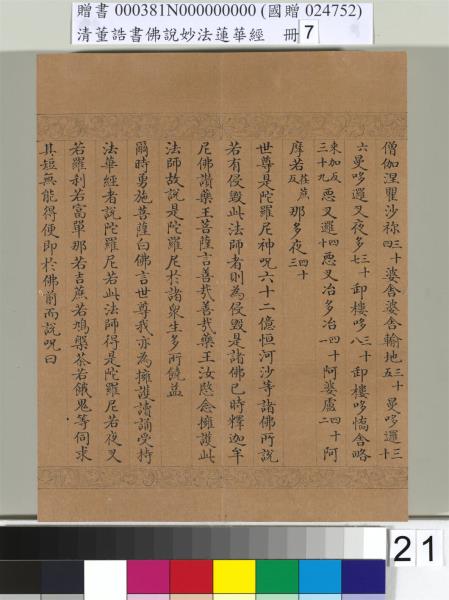 贈書 000381N000000000 (國贈 024752)
清董誥書佛說妙法蓮華經 冊 7
僧伽涅瞿沙祢三十四婆舍婆舍輸地三十五曼哆邏三十
六曼哆邏叉夜多三十七卸樓哆三十八卸樓哆憍舍略
來加反三十九惡叉邏四十惡叉冶多冶四十一阿婆盧四十二阿
摩若荏蔗反那多夜四十三
世尊是陀羅尼神呪六十二億恒河沙等諸佛所說
若有侵毀此法師者則為侵毀是諸佛已時釋迦牟
尼佛讚藥王菩薩言善哉善哉藥王汝愍念擁護此
法師故說是陀羅尼於諸眾生多所饒益
爾時勇施菩薩白佛言世尊我亦為擁護讀誦受持
法華經者說陀羅尼若此法師得是陀羅尼若夜叉
若羅刹若富單那若吉蔗若鳩槃茶若餓鬼等伺求
其短無能得便即於佛前而說呪曰
21